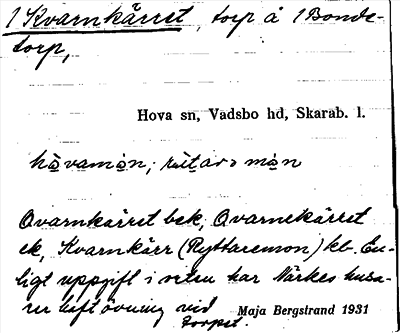 1 Kvarnkärret, torp å 1 Bonde-
torp,
Hova sn, Vadsbo hd, Skarab. l.
håvamon; rütar mon
Qvarnkärret bek, Qvarnekärret
ek, Kvarnkärr (Ryttaremon) kb. En-
ligt uppgift i orten har Närkes husa-
rer haft övning vid
torpet.
Maja Bergstrand 1931